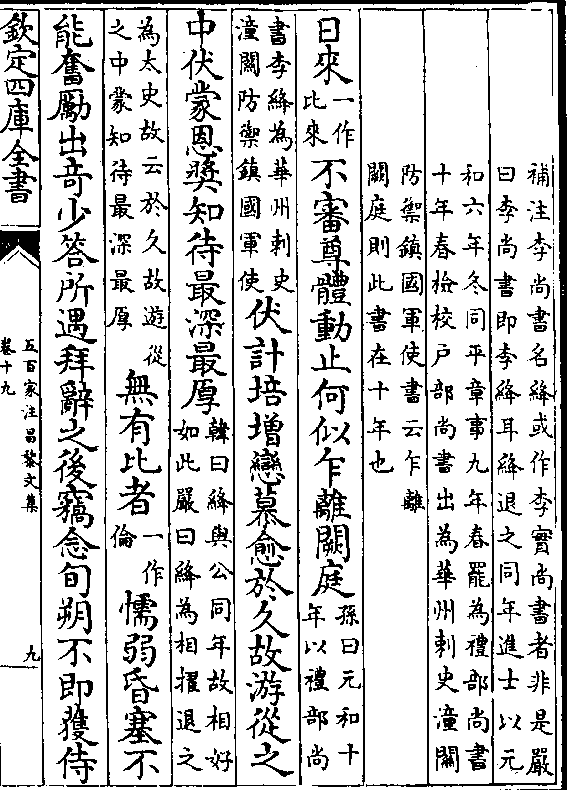 補注李尚書名絳或作李實尚書者非是嚴
曰李尚書即李絳耳絳退之同年進士以元
和六年冬同平章事九年春罷為禮部尚書
十年春檢校户部尚書出為華州刺史潼關
防禦鎮國軍使書云乍離
闕庭則此書在十年也
日來一作比來不審尊體動止何似乍離闕庭孫曰元和十年以禮部尚
書李絳為華州刺史潼關防禦鎮國軍使伏計培增戀慕愈於久故游從之
中伏蒙恩奬知待最深最厚韓曰絳與公同年故相好如此嚴曰絳為相擢退之
為太史故云於久故遊從之中蒙知待最深最厚無有比者一作倫懦弱昏塞不
能奮勵出竒少答所遇拜辭之後竊念旬朔不即獲侍
欽定四庫全書
五百家注昌黎文集
卷十九
九